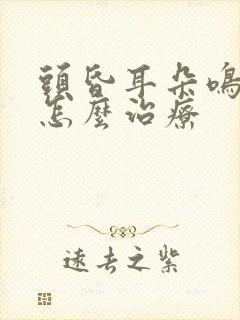 頭昏耳朵鳴
怎麼治療
遠去之紫